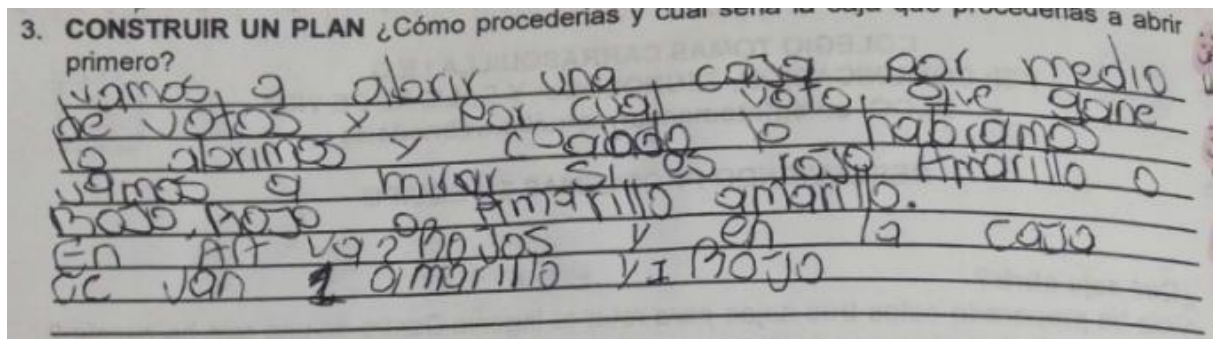 3. CONSTRUIR UN PLAN ¿Cómo procederías y cuál sería la caja que procederías a abrir
primero?
vamos, a abrir una caja por medio
de votos y por cual voto, que gane
lo abrimos y cuando lo habramos
vamos a mirar si, es rojo Amarillo o
Rojo, Rojo o Amarillo amarillo.
En AA va 2 Rojos y en la caja
CC van 1 amarillo y 1 Rojo